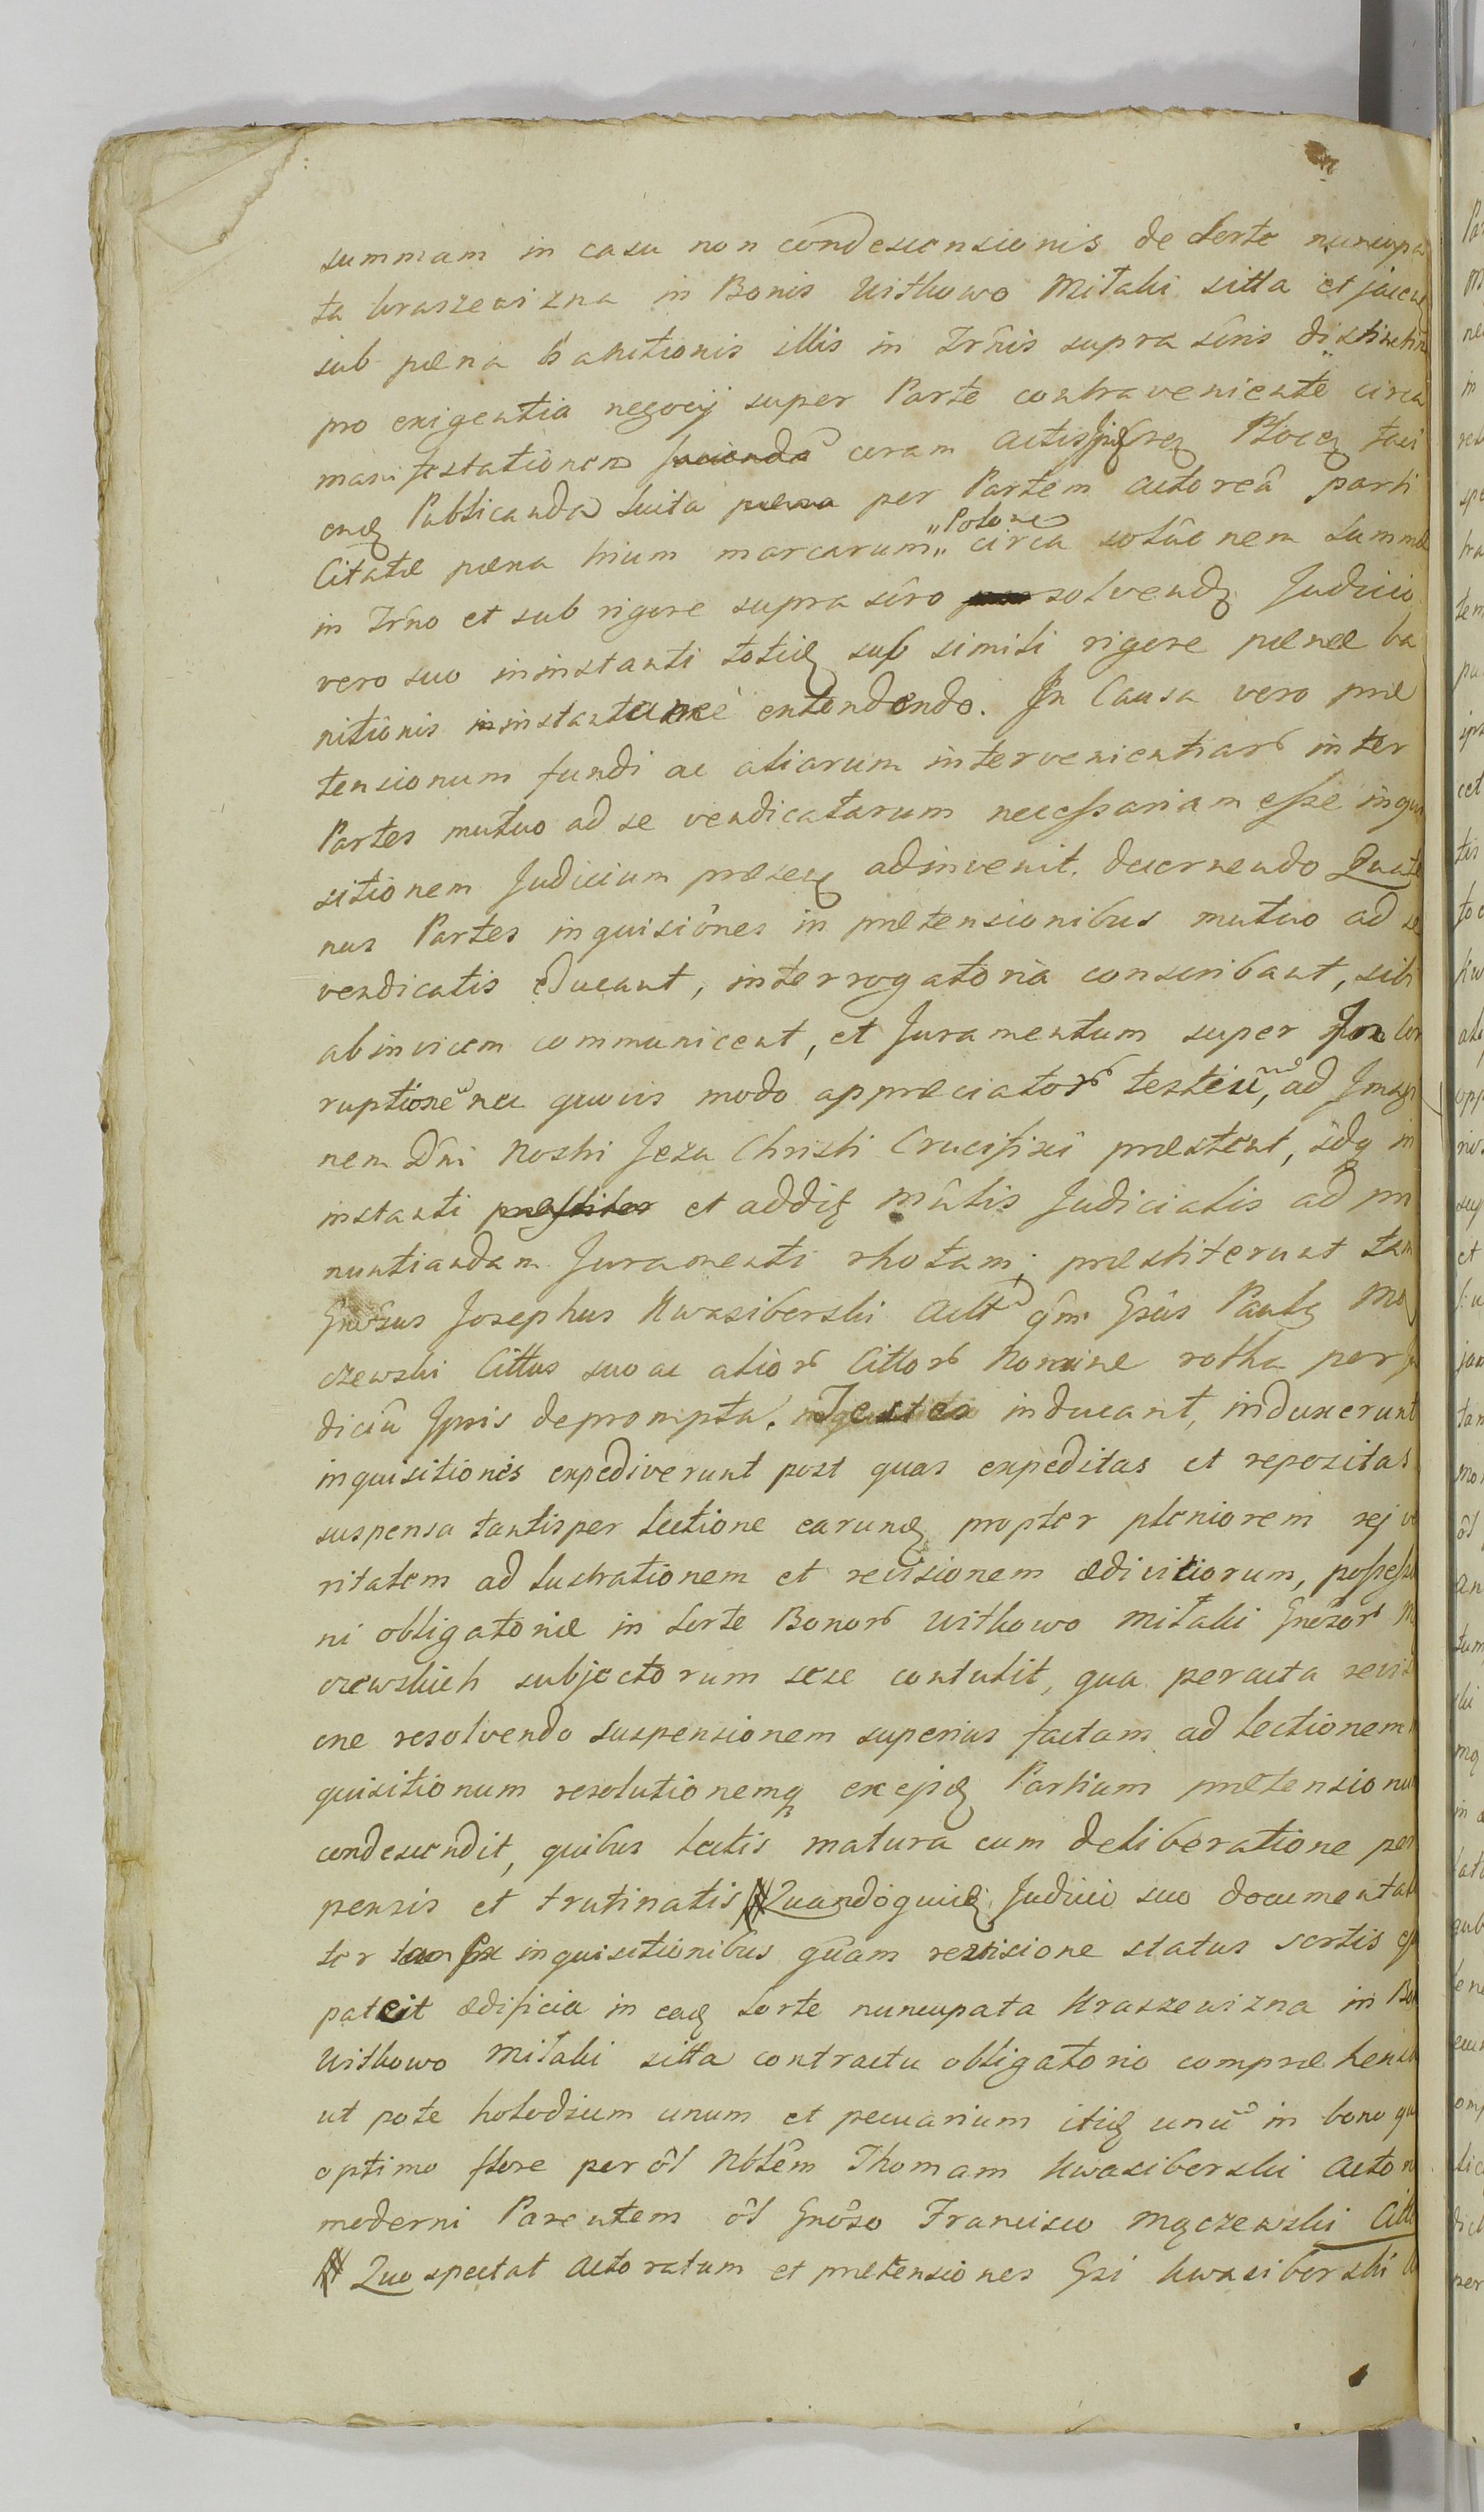 summam in casu non condescensionis de Sorte nuncupa
ta kraszewizna in Bonis Witkowo Mitaki sitta et jacen
sub pæna banitionis illis in Trnis supra scris distinctim
pro exigentia negocij super Parte contraveniente circa
manifestationem facienda coram Actis Plocen faci
end Publicanda Luita pæna per Partem Actoreâ parti
Citatæ pæna trium marcarum „Polone„ circa solucnem Summæ
in Trno et sub rigore supra scro solvend Judicio
vero suo in instanti totid sub simili rigore pænæ ba
nitionis instantanee extendendo. In Causa vero præ
tensionum fundi ac aliarum intervenientiar inter
Partes mutuo ad se vendicatarum necessariam esse inqui
sitionem Judicium præsens adinvenit. decernendo Quate
nus Partes inquisiones in prætensionibus mutuo ad se
vendicatis educant, interrogatoria conscribant, sibi
abinvicem communicent, et Juramentum super Incor
ruptione nec quovis modo appræciator testium, ad Imagi
nem Dni Nostri Jesu Christi Crucifixi præstent, idq in
instanti præstiter et addit Mnlis Judicialis ad pro
nuntiandam Juramenti rhotam; præstiterunt tam
Gnosus Josephus Kwasiborski Actr qm Gsus Paulus Mą
czewski Cittus suo ac alior Cittor Nomine rotha per Ju
diciû Ipsis deprompta. Testes inducant, induxerunt
inquisitionis expediverunt post quas expeditas et repositas
suspensa tantisper lectione earund propter pleniorem rej ve
ritatem ad lustrationem et revisionem ædificiorum, possessio
ni obligatoriæ in Sorte Bonor Witkowo Mitaki Gnosor Mą
czewskich subjectorum sese contulit, qua peracta revisi
one resolvendo suspensionem superius factam ad lectionem in
quisitionum resolutionemq except Partium prætensionum
condescendit, quibus lectis matura cum deliberatione per
pensis et trutinatis # Quandoquid Judicio suo documentali
ter tam ex inquisitionibus quam revisione status sortis
pateit ædificia in ead Sorte nuncupata Kraszewizna in Bo
Witkowo Mitaki sitta contractu obligatorio compræhensa
ut pote hołodium unum et pecuarium itid unū in bono
optimo store per ol Nblem Thomam Kwasiborski Acto
moderni Parentem ol Gnoso Francisco Mączewski Citti
# Quo spectat Actoratum et prætensiones Gsi Kwasiborski